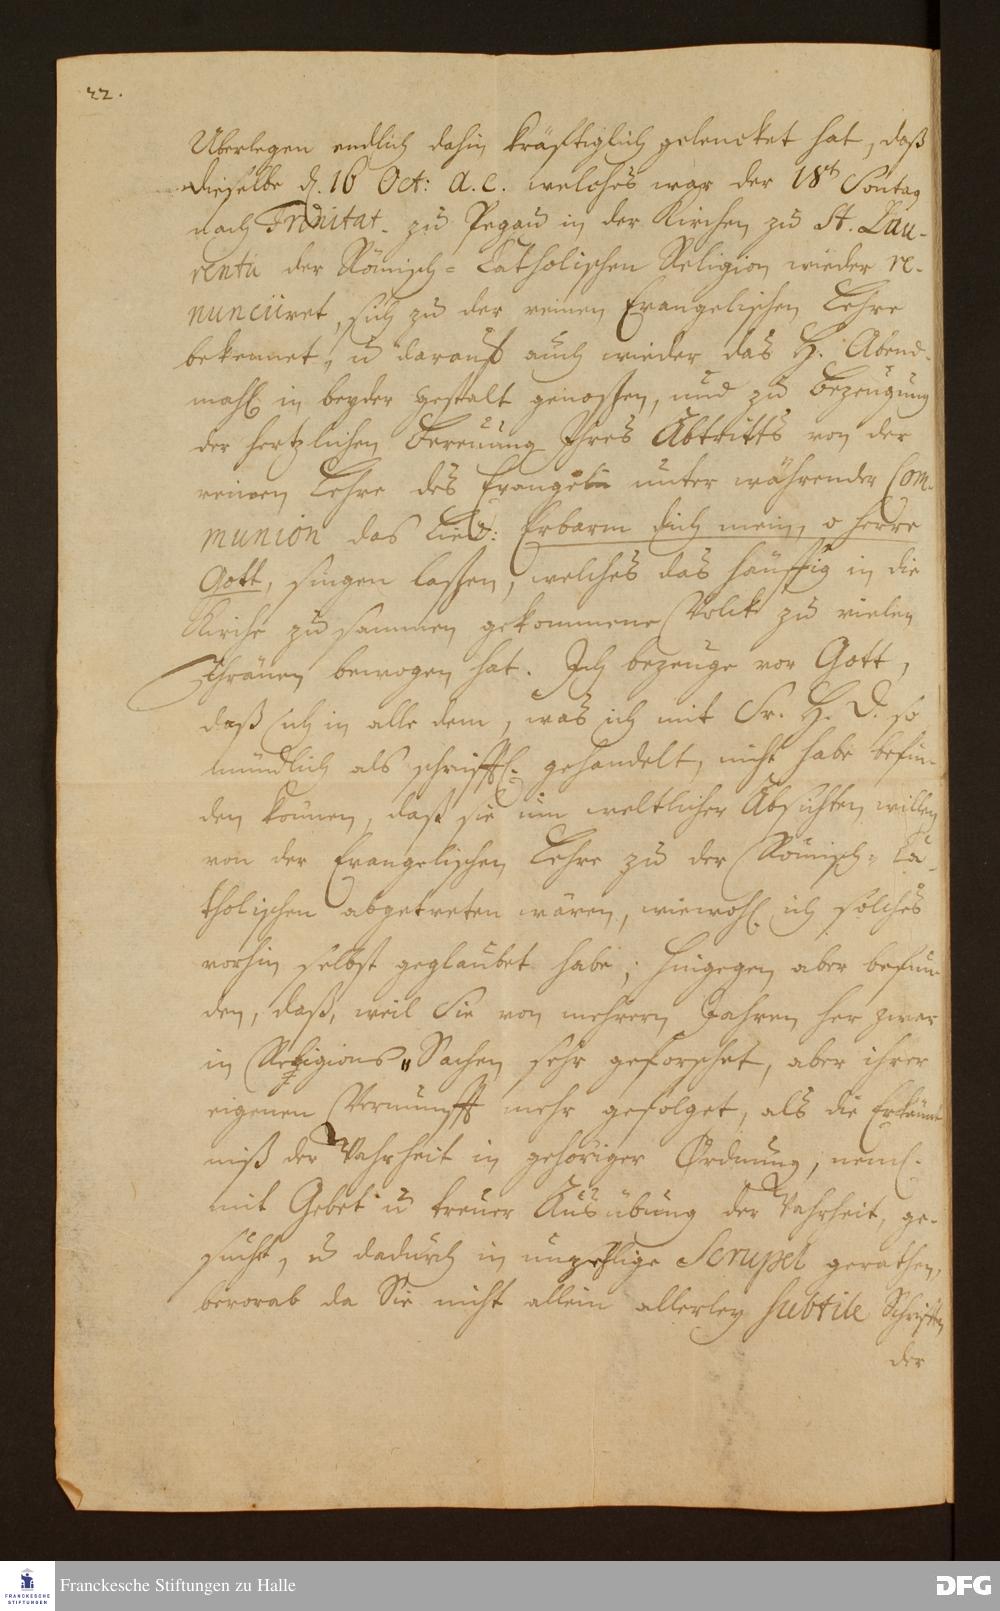 22.
Überlegen endlich dahin kräfftiglich gelencket hat, daß
dieselbe d. 16 Oct: a. c. welches war der 18te Sontag
nach Trinitat. zu Pegau in der Kirchen zu St. Lau-
rentii der Römisch-Catholischen Religion wieder re-
nunciiret, sich zu der reinen Evangelischen Lehre
bekennet, u darauf auch wieder das H. Abend-
mahl in beyder gestalt genoßen, und zu Bezeugung
der hertzlichen Bereuung Ihres Abtritts von der
reinen Lehre des Evangelii unter währender Com-
munion das Lied: Erbarm dich mein, o Herre
Gott, singen laßen, welches das häuffig in die
Kirche zusammen gekommene Volck zu vielen
Thränen bewogen hat. Ich bezeuge vor Gott,
daß ich in alle dem, was ich mit Sr. H. D. so
mündlich als schrifftl. gehandelt, nicht habe befin-
den können, daß sie um weltlicher Absichten willen
von der Evangelischen Lehre zu der Römisch-Ca-
tholischen abgetreten wären, wiewohl ich solches
vorhin selbst geglaubet habe; hingegen aber befun-
den, daß, weil Sie von mehrern Jahren her zwar
in Religions-Sachen sehr geforschet, aber ihrer
eigenen Vernunfft mehr gefolget, als die Erkännt-
niß der Wahrheit in gehöriger Ordnung, neml.
mit Gebet u treuer Ausübung der Wahrheit, ge-
sucht, u dadurch in unzehlige Scrupel gerathen,
bevorab da Sie nicht allein allerley subtile Schrifften
der
Franckesche Stiftungen zu Halle
FRANCKESCHE
STIFTUNGEN
DFG